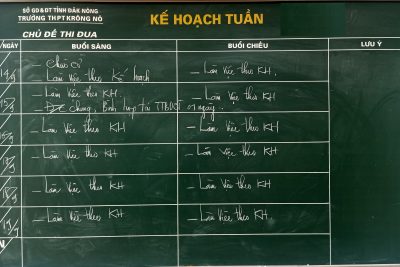 SỞ GD&ĐT TỈNH ĐĂK NÔNG
TRƯỜNG THPT KRÔNG NÔ
KẾ HOẠCH TUẦN
CHỦ ĐỀ THI ĐUA
/NGÀY BUỔI SÁNG BUỔI CHIỀU LƯU Ý
- Chào cờ
- Làm việc theo Kế hoạch - Làm việc theo KH.
- Làm việc theo KH. - Làm việc theo KH
chung, tại 01 ngày.
- Làm việc theo KH - Làm việc theo KH
- Làm việc theo KH - Làm việc theo KH
- Làm việc theo KH - Làm việc theo KH
- Làm việc theo KH - Làm việc theo KH.